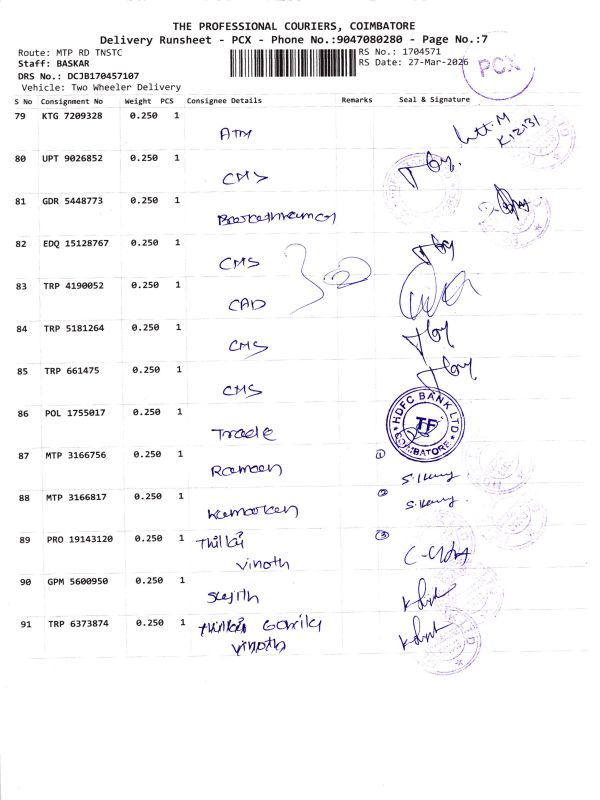 THE PROFESSIONAL COURIERS, COIMBATORE
Delivery Runsheet - PCX - Phone No.:9047080280 - Page No.:7
Route: MTP RD TNSTC
RS No.: 1704571
Staff: BASKAR
RS Date: 27-Mar-2026
PCX
DRS No.: DCJB170457107
Vehicle: Two Wheeler Delivery
S No Consignment No Weight PCS Consignee Details Remarks Seal & Signature
79 KTG 7209328 0.250 1
ATM
K12131
80 UPT 9026852 0.250 1
CMS
81 GDR 5448773 0.250 1
82 EDQ 15128767 0.250 1
CMS
83 TRP 4190052 0.250 1
CAD
84 TRP 5181264 0.250 1
CMS
85 TRP 661475 0.250 1
CMS
86 POL 1755017 0.250 1
Trade
HDFC BANK LTD
TF
COIMBATORE
87 MTP 3166756 0.250 1 1
Raman
88 MTP 3166817 0.250 1 2
89 PRO 19143120 0.250 1 3
vinoth
90 GPM 5600950 0.250 1
Sujith
91 TRP 6373874 0.250 1
vinoth